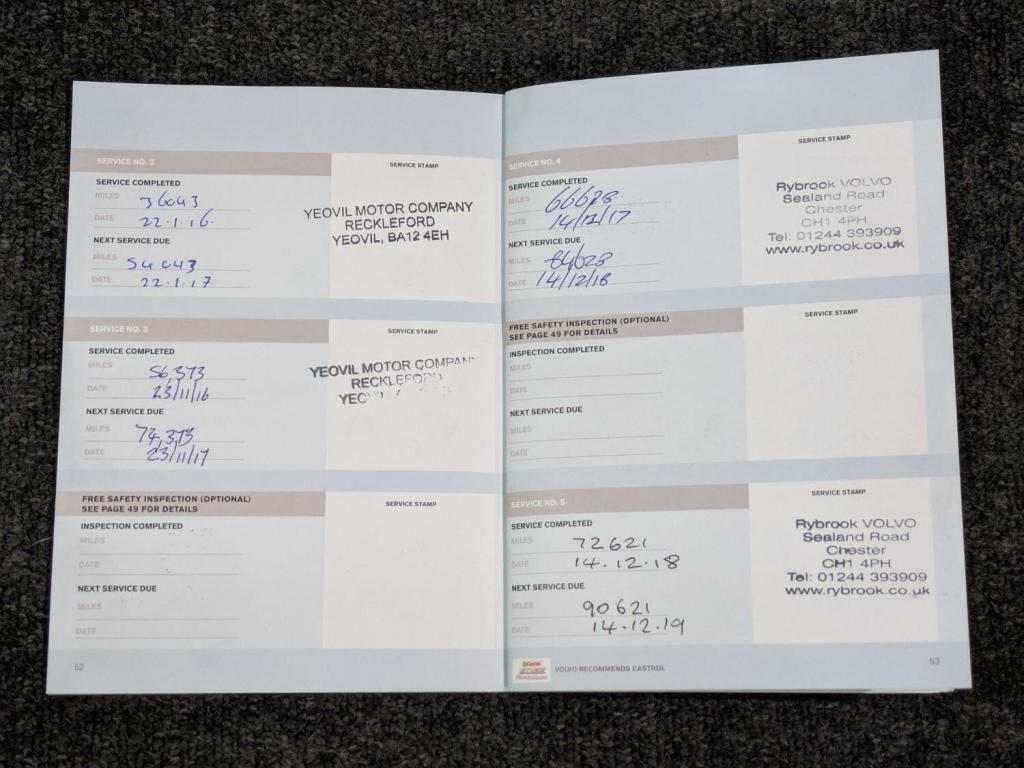 SERVICE NO. 2
SERVICE STAMP
SERVICE COMPLETED
MILES 36043
DATE 22.1.16.
NEXT SERVICE DUE
MILES 54043
DATE 22.1.17
YEOVIL MOTOR COMPANY
RECKLEFORD
YEOVIL, BA12 4EH
SERVICE NO. 3
SERVICE STAMP
SERVICE COMPLETED
MILES 56,373
DATE 23/11/16
NEXT SERVICE DUE
MILES 74,373
DATE 23/11/17
YEOVIL MOTOR COMPANY
RECKLEFORD
FREE SAFETY INSPECTION (OPTIONAL)
SEE PAGE 49 FOR DETAILS
SERVICE STAMP
INSPECTION COMPLETED
MILES
DATE
NEXT SERVICE DUE
MILES
DATE
52
SERVICE NO. 4
SERVICE STAMP
SERVICE COMPLETED
MILES 66628
DATE 14/12/17
NEXT SERVICE DUE
MILES 84628
DATE 14/12/18
Rybrook VOLVO
Sealand Road
Chester
CH1 4PH
Tel: 01244 393909
www.rybrook.co.uk
FREE SAFETY INSPECTION (OPTIONAL)
SEE PAGE 49 FOR DETAILS
SERVICE STAMP
INSPECTION COMPLETED
MILES
DATE
NEXT SERVICE DUE
MILES
DATE
SERVICE NO. 5
SERVICE STAMP
SERVICE COMPLETED
MILES 72621
DATE 14.12.18
NEXT SERVICE DUE
MILES 90621
DATE 14.12.19
Rybrook VOLVO
Sealand Road
Chester
CH1 4PH
Tel: 01244 393909
www.rybrook.co.uk
Castrol
EDGE
Professional
VOLVO RECOMMENDS CASTROL
53